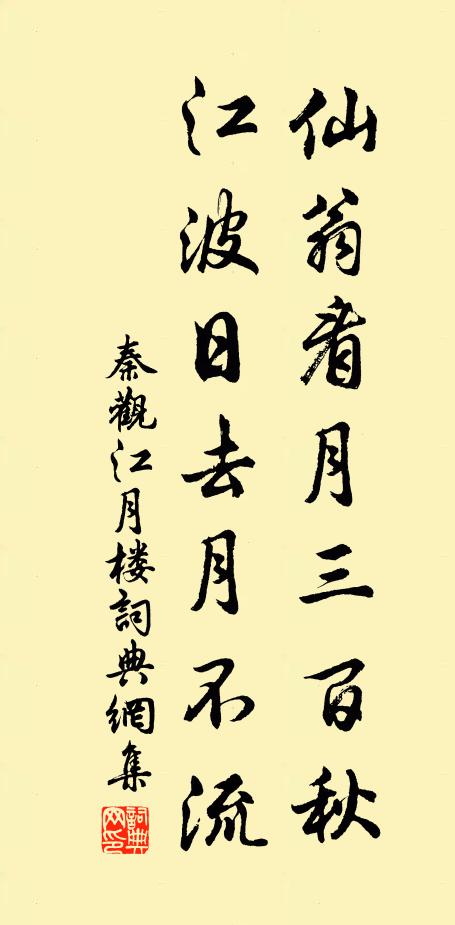 仙翁看月三百秋
江波日去月不流
秦觀江月楼詞典網集
詞典
网印